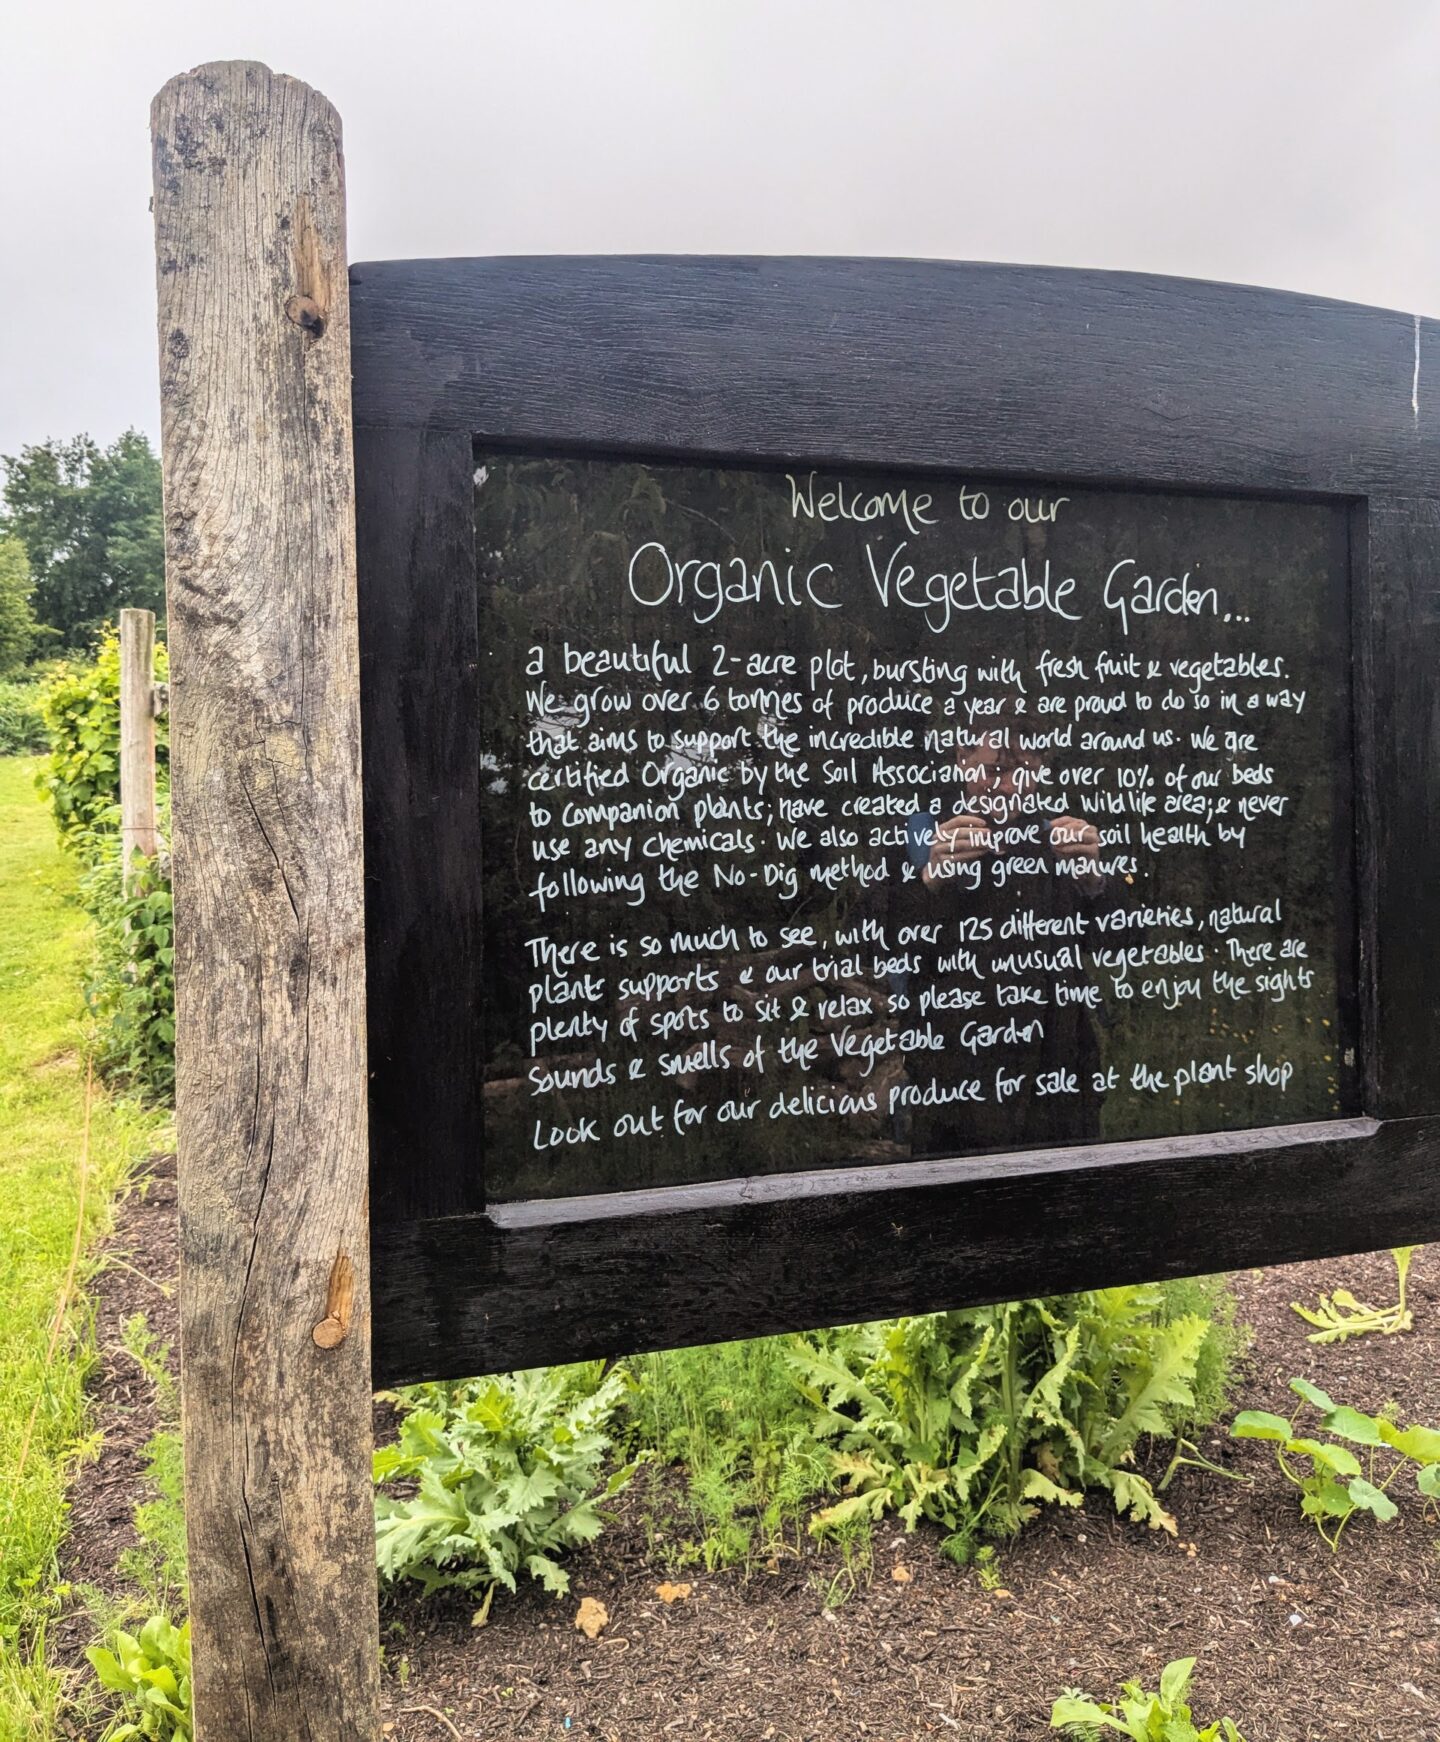 Welcome to our
Organic Vegetable Garden...
a beautiful 2-acre plot, bursting with fresh fruit & vegetables.
We grow over 6 tonnes of produce a year & are proud to do so in a way
that aims to support the incredible natural world around us. We are
certified Organic by the Soil Association; give over 10% of our beds
to companion plants; have created a designated wildlife area; & never
use any chemicals. We also actively improve our soil health by
following the No-Dig method & using green manures.
There is so much to see, with over 125 different varieties, natural
plant supports & our trial beds with unusual vegetables. There are
plenty of spots to sit & relax so please take time to enjoy the sights
Sounds & smells of the Vegetable Garden
Look out for our delicious produce for sale at the plant shop